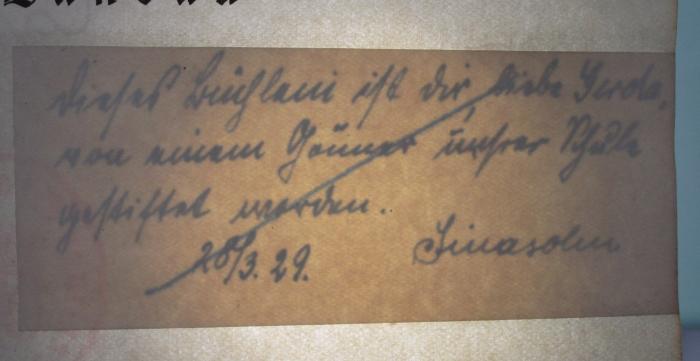 Dieses Büchlein ist dir, liebe Gerda,
von einem Gönner unsrer Schule
gestiftet worden.
28/3. 29.